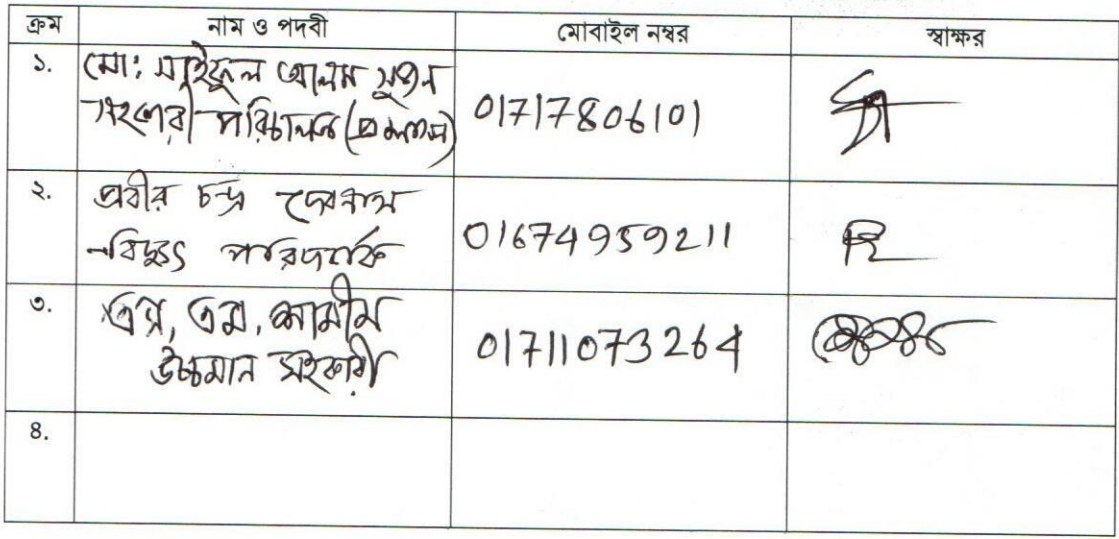 ক্রম নাম ও পদবী মোবাইল নম্বর স্বাক্ষর
১. মো: সাইফুল আলম সুজন
সহকারী পরিচালক (প্রশাসন) 01717806101
২. প্রবীর চন্দ্র দেবনাথ
বিদ্যুৎ পরিদর্শক 01674959211
৩. এস, এম, শামীম
উচ্চমান সহকারী 01711073264
৪.